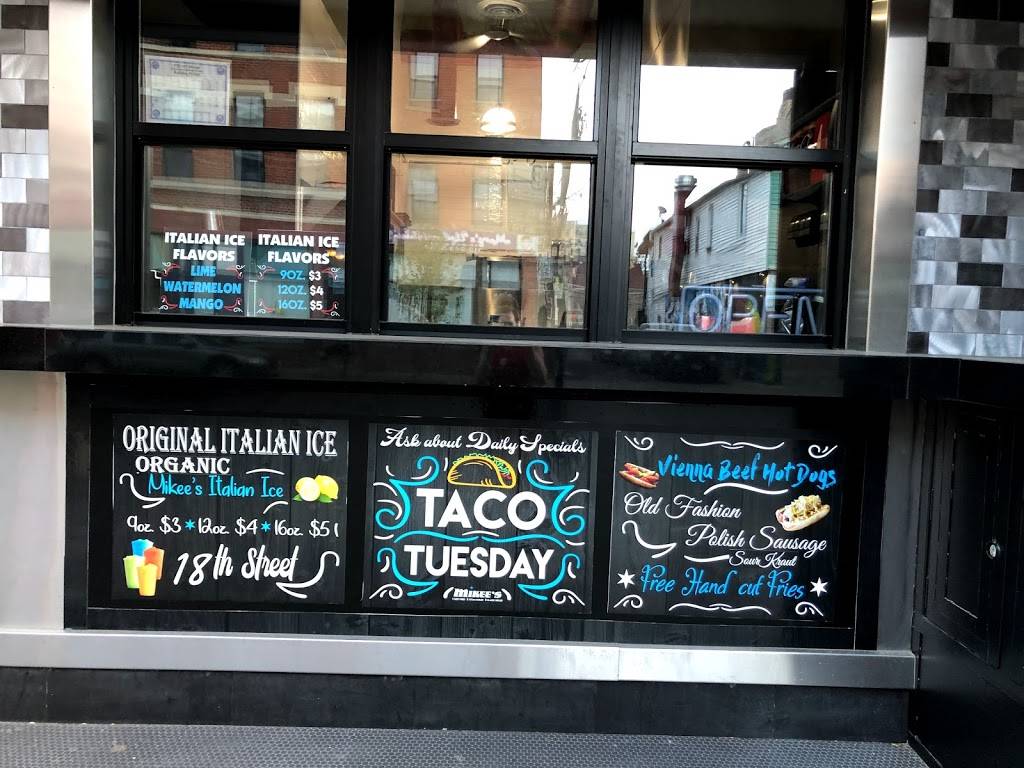 ITALIAN ICE
FLAVORS
LIME
WATERMELON
MANGO
ITALIAN ICE
FLAVORS
9OZ. $3
12OZ. $4
16OZ. $5
OPEN
ORIGINAL ITALIAN ICE
ORGANIC
Mikee's Italian Ice
9oz. $3 * 12oz. $4 * 16oz. $5
18th Street
Ask about Daily Specials
TACO
TUESDAY
MIKEE'S
Vienna Beef Hot Dogs
Old Fashion
Polish Sausage
Sour Kraut
Free Hand cut Fries